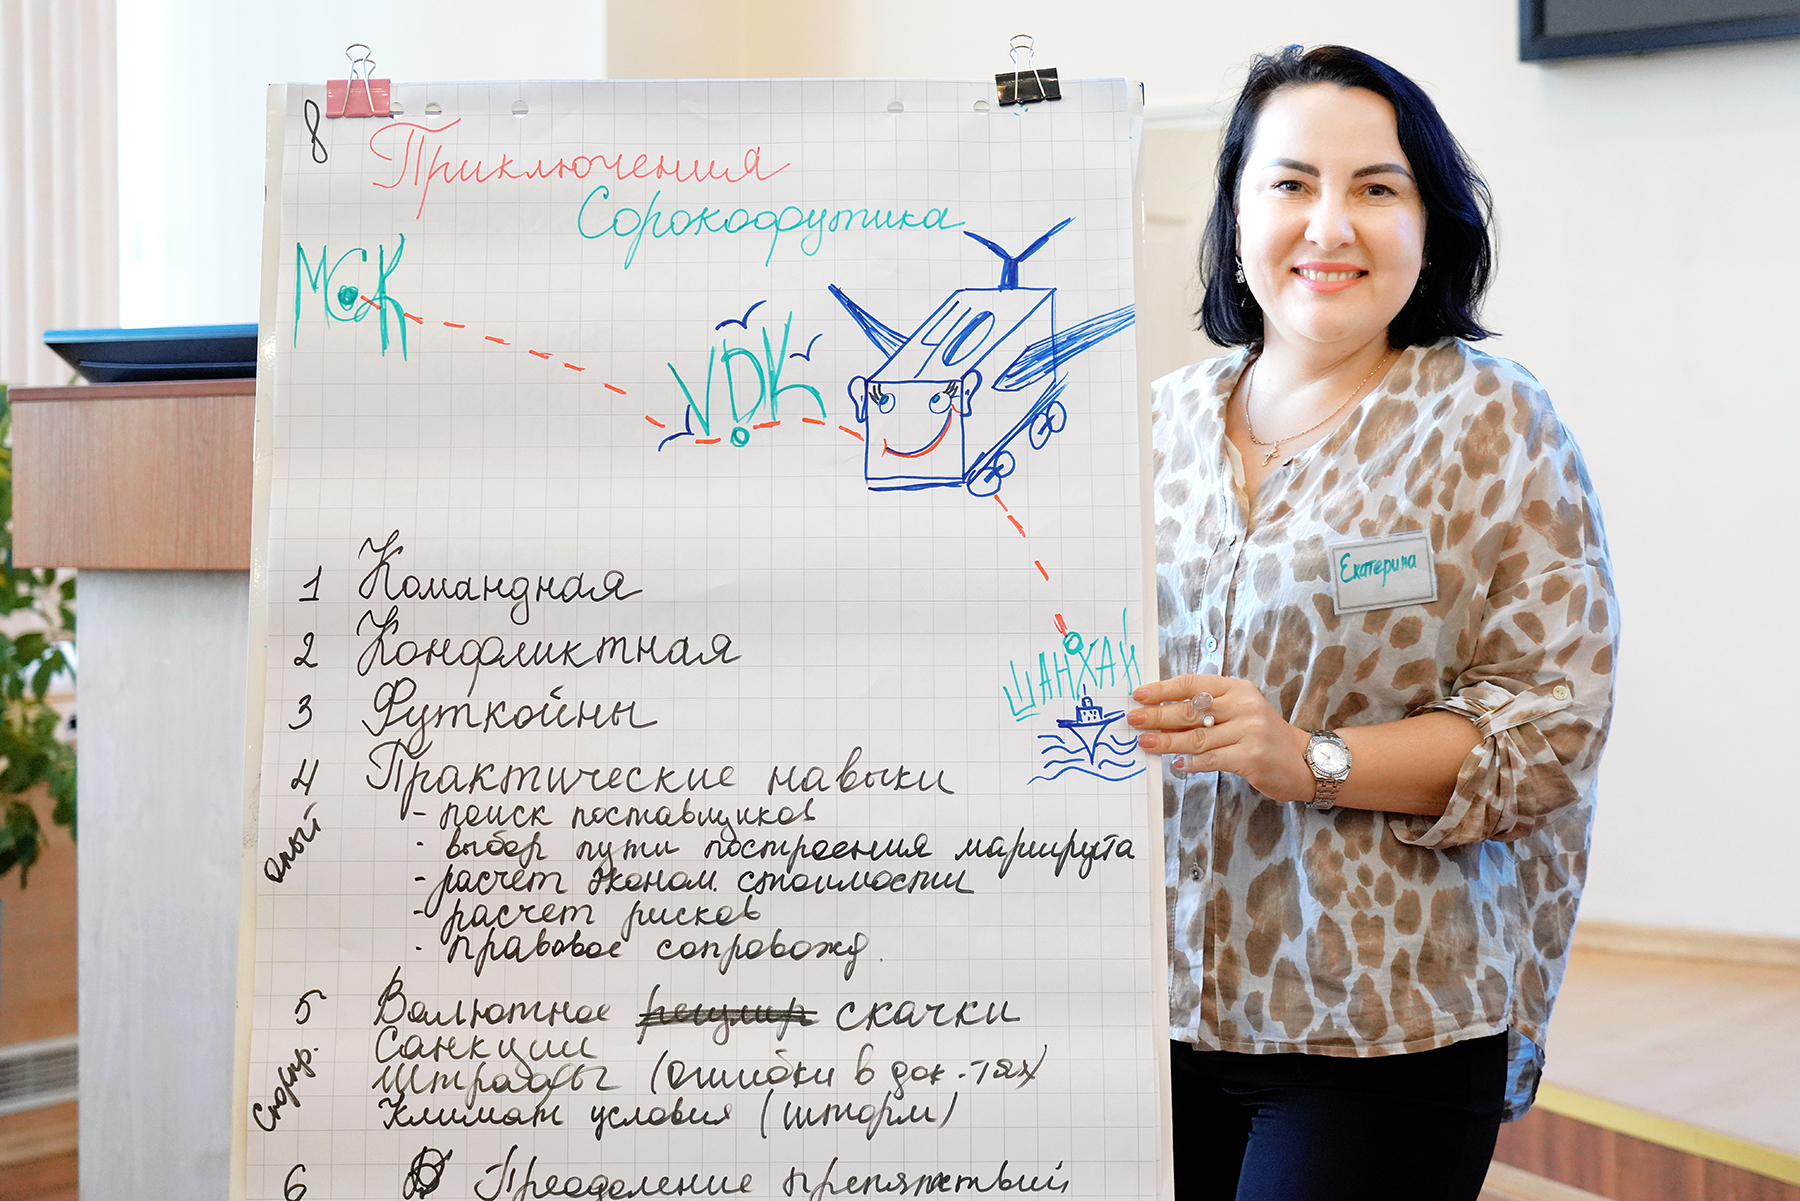 8
Приключения
Сорокофутика
МСК
VDK
40
ШАНХАЙ
Екатерина
1 Командная
2 Конфликтная
3 Футкойны
4 Практические навыки
- поиск поставщиков
- выбор пути построения маршрута
- расчет эконом. стоимости
- расчет рисков
- правовое сопровожд.
5 Валютное регулир скачки
Санкции
Штрафы (ошибки в док-тах)
Климат условия (шторм)
6 Преодоление препятствий